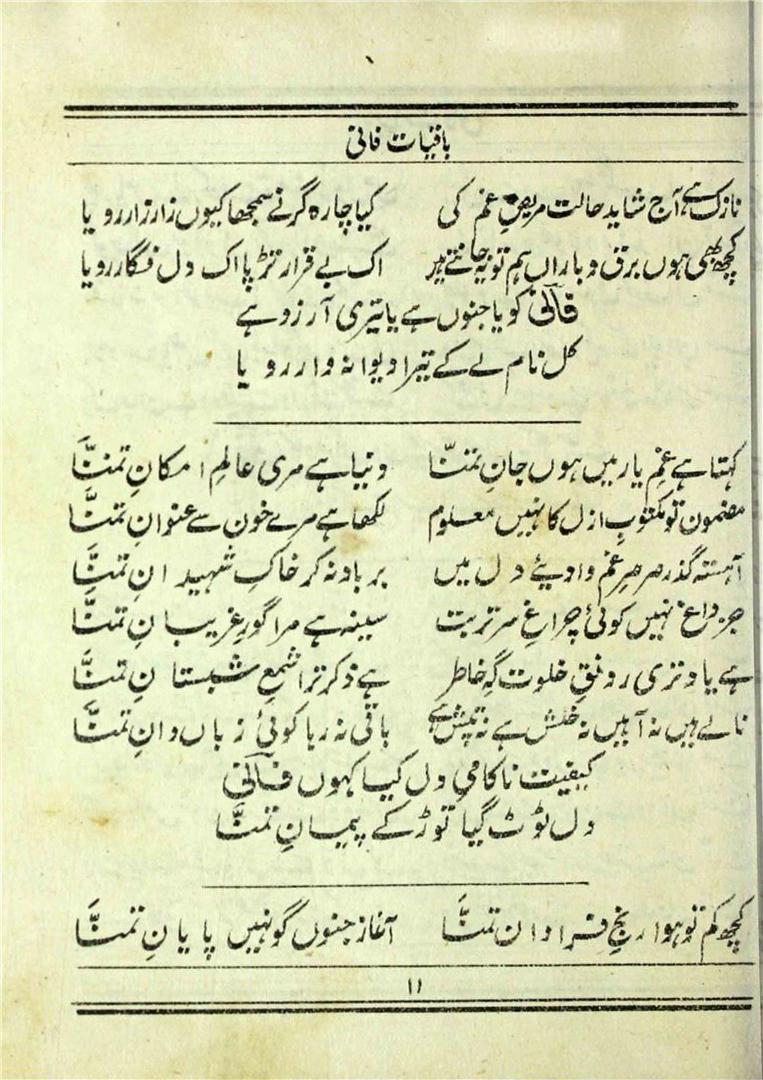 باقیات فانی
نازک ہے آج شاید حالت مریضِ غم کی کیا چارہ گر نے سمجھا کیوں زار زار رویا
کچھ بھی ہوں برق و باراں ہم تو یہ جانتے ہیں اک بے قرار تڑپا اک دل فگار رویا
فانی کو یا جنوں ہے یا تیری آرزو ہے
کل نام لے کے تیرا دیوانہ وار رویا
کہتا ہے غمِ یار میں ہوں جانِ تمنّا دنیا ہے مری عالمِ امکانِ تمنّا
مضمون تو مکتوبِ ازل کا نہیں معلوم لکھا ہے مرے خون سے عنوانِ تمنّا
آہستہ گذر صرصرِ غم وادیٔے دل میں برباد نہ کر خاکِ شہیدانِ تمنّا
جز داغ نہیں کوئی چراغِ سرِ تربت سینہ ہے مرا گورِ غریبانِ تمنّا
ہے یاد تری رونقِ خلوت گہِ خاطر ہے ذکر ترا شمعِ شبستانِ تمنّا
نالے ہیں نہ آہیں نہ خلش ہے نہ تپش ہے باقی نہ رہا کوئی زباں دانِ تمنّا
کیفیت ناکامیِ دل کیا کہوں فانی
دل ٹوٹ گیا توڑ کے پیمانِ تمنّا
کچھ کم تو ہوا رنجِ فراوانِ تمنّا آغازِ جنوں گو نہیں پایانِ تمنّا
۱۱